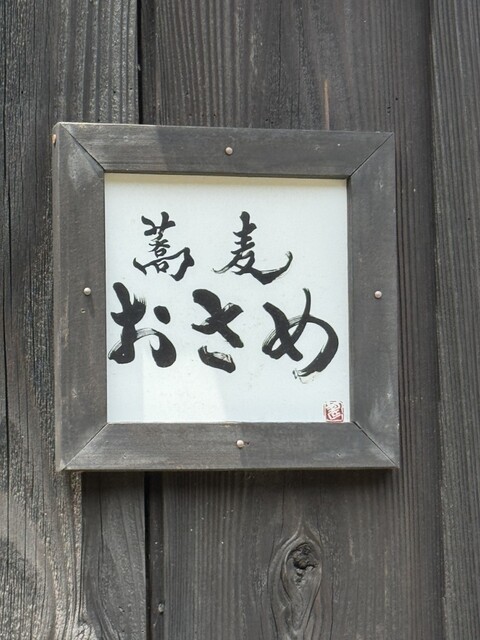 蕎麦
おさめ